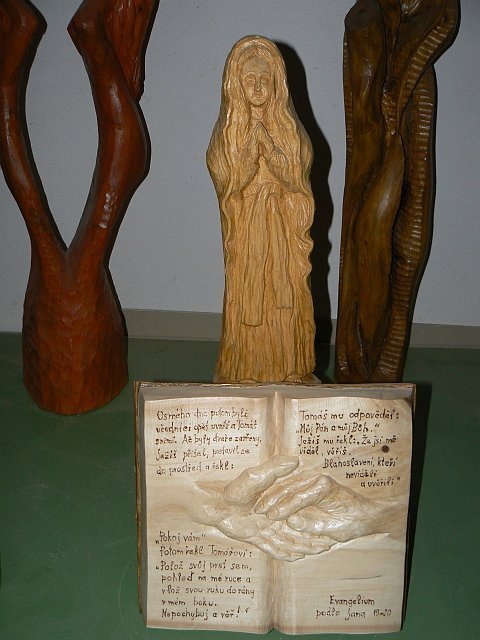 Osmého dne potom byli
učedníci opět uvnitř a Tomáš
s nimi. Ač byly dveře zavřeny,
Ježíš přišel, postavil se
do prostřed a řekl:
„Pokoj vám"
Potom řekl Tomášovi:
„Polož svůj prst sem,
pohleď na mé ruce a
vlož svou ruku do rány
v mém boku.
Nepochybuj a věř!"
Tomáš mu odpověděl:
„Můj Pán a můj Bůh."
Ježíš mu řekl: „Že jsi mě
viděl, věříš.
Blahoslavení, kteří
neviděli
a uvěřili"
Evangelium
podle Jana 19-20